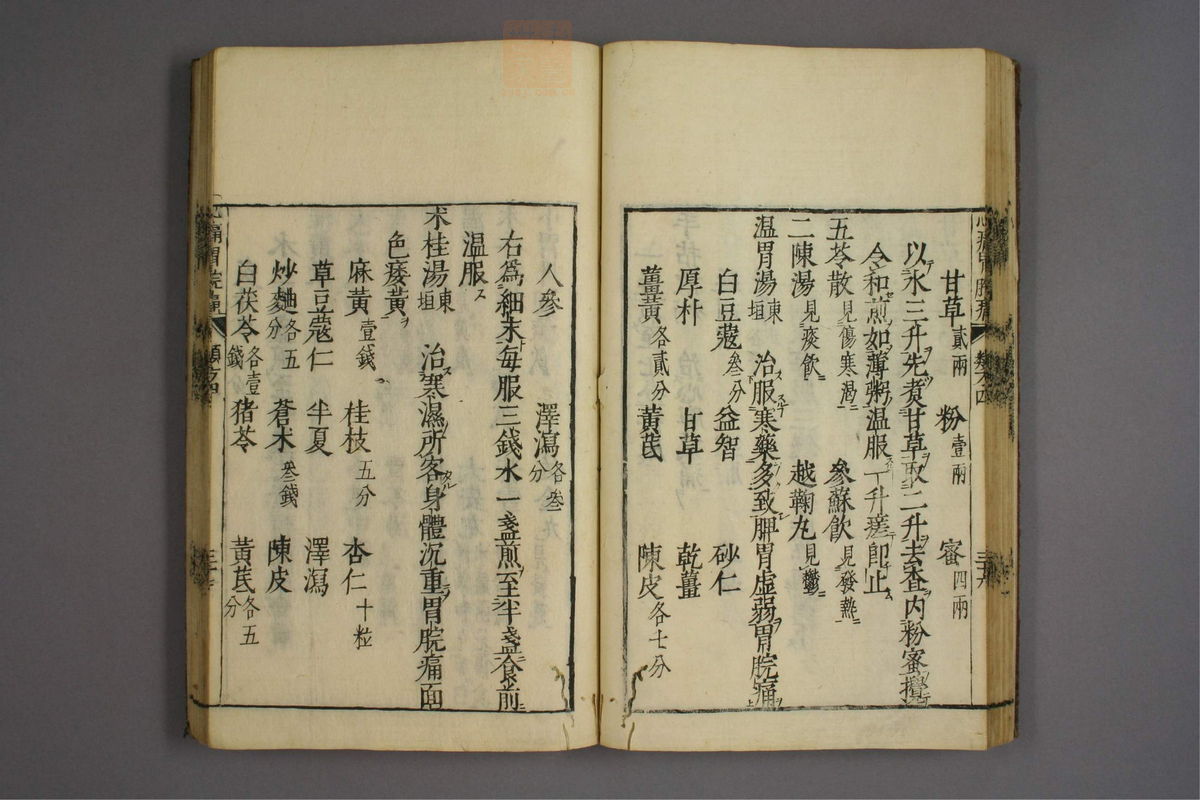 甘草貳兩　粉壹兩　蜜四兩
以水三升先煑甘草取二升去査内粉蜜攪
令和煎如薄粥温服一升瘥即止
五苓散見傷寒渇　參蘇飲見發熱
二陳湯見痰飲　越鞠丸見鬱
温胃湯東垣　治服寒藥多致脾胃虚弱胃脘痛
白豆蔲叁分　益智　砂仁
厚朴　甘草　乾薑
薑黄各貳分　黄芪　陳皮各七分
人參　澤瀉各叁分
右爲細末毎服三錢水一盞煎至半盞食前
温服
朮桂湯東垣　治寒濕所客身體沉重胃脘痛面
色痿黄
麻黄壹錢　桂枝五分　杏仁十粒
草豆蔲仁　半夏　澤瀉
炒麯各五分　蒼朮叁錢　陳皮
白茯苓各壹錢　猪苓　黄芪各五分